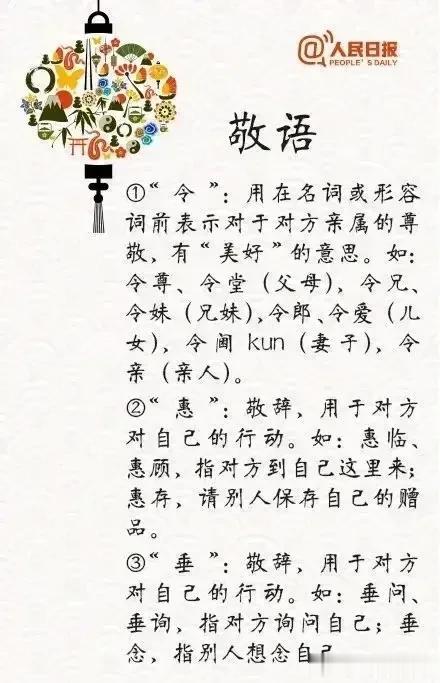 @人民日报
PEOPLE'S DAILY
敬语
①“令”：用在名词或形容
词前表示对于对方亲属的尊
敬，有“美好”的意思。如：
令尊、令堂（父母），令兄、
令妹（兄妹），令郎、令爱（儿
女），令阃 kun（妻子），令
亲（亲人）。
②“惠”：敬辞，用于对方
对自己的行动。如：惠临、
惠顾，指对方到自己这里来；
惠存，请别人保存自己的赠
品。
③“垂”：敬辞，用于对方
对自己的行动。如：垂问、
垂询，指对方询问自己；垂
念，指别人想念自己